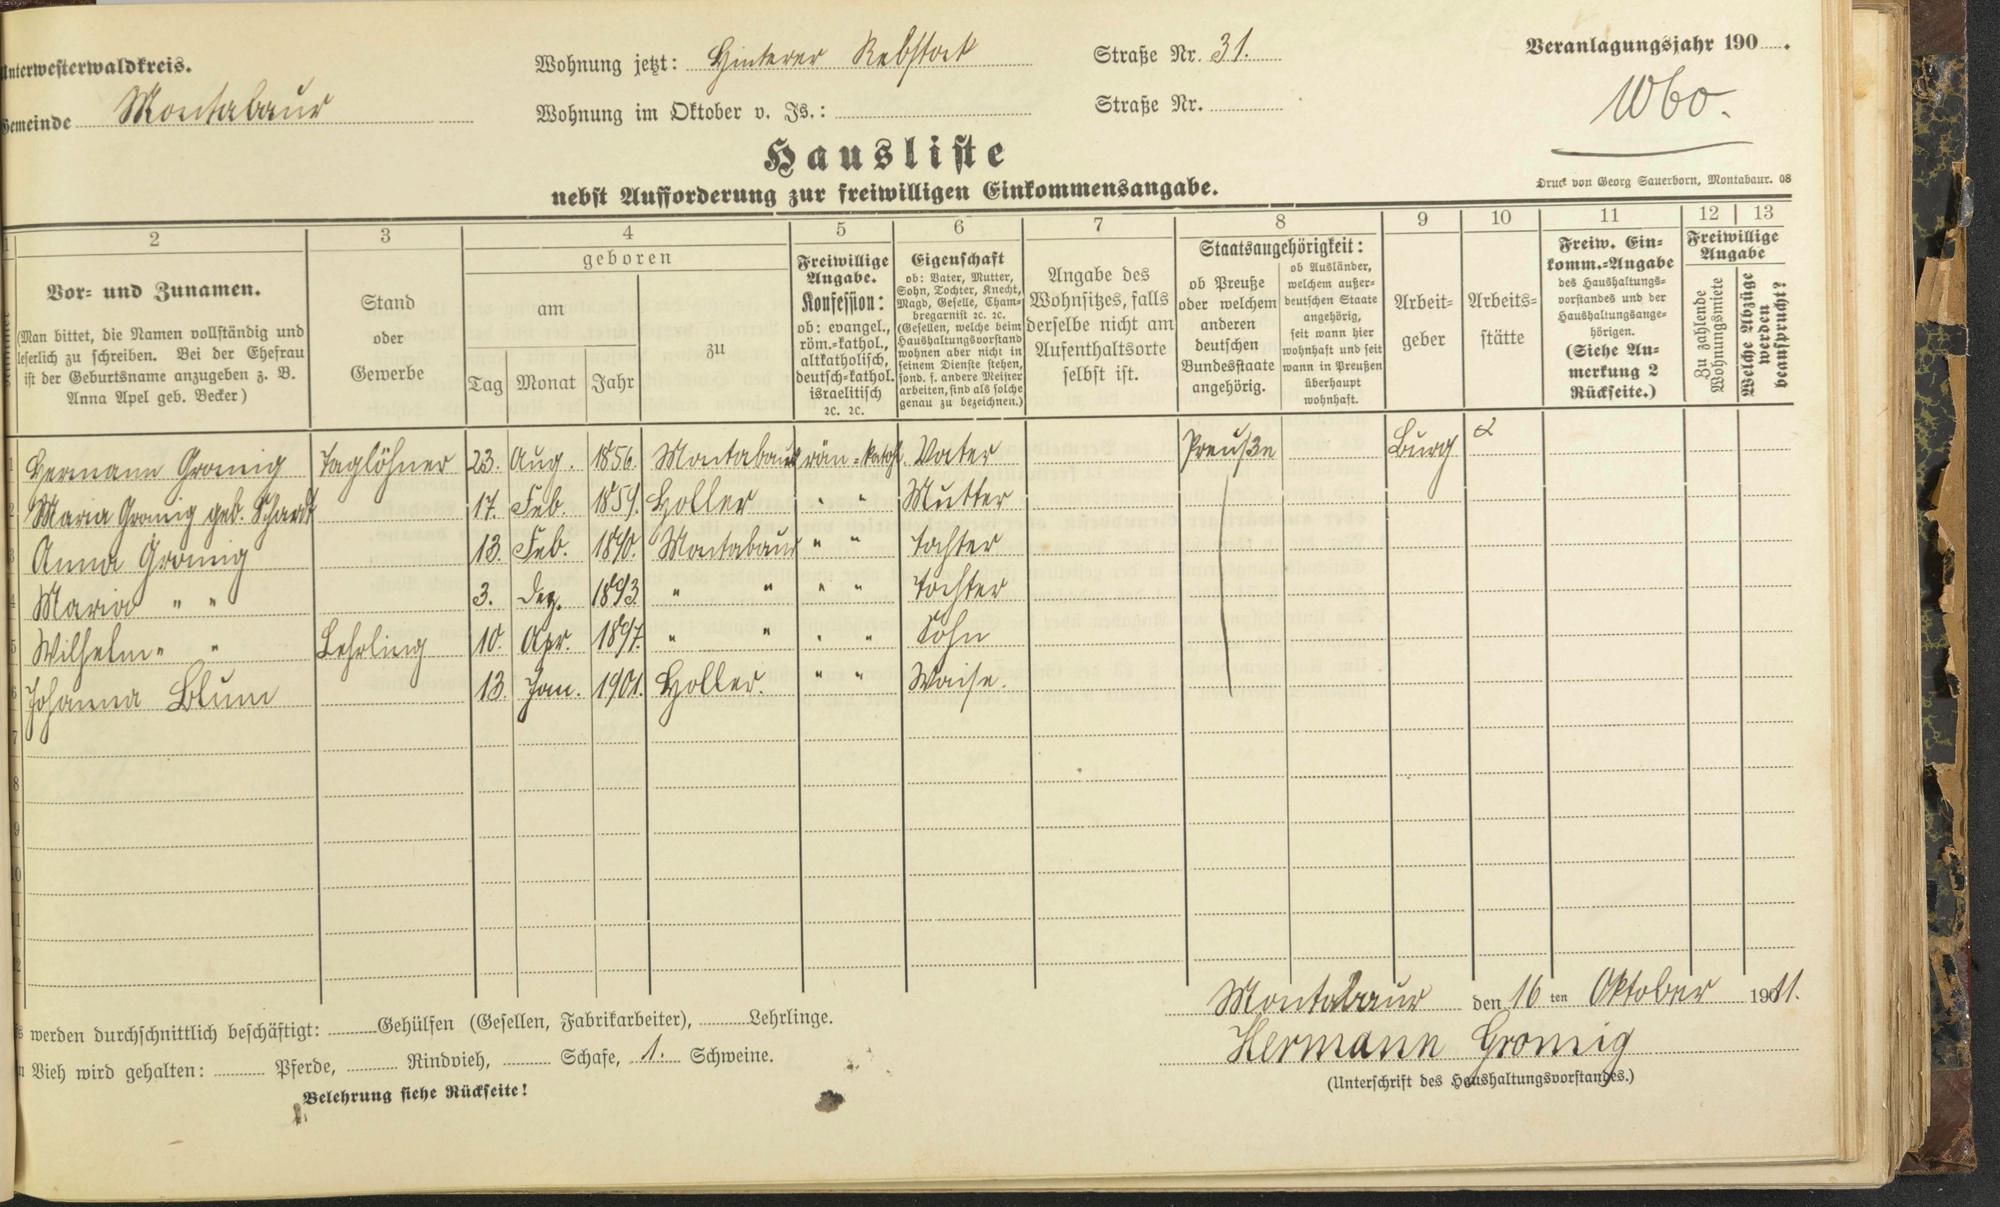 Unterwesterwaldkreis.
Wohnung jetzt: Hinterer Rebstock Straße Nr. 31.
Veranlagungsjahr 190 .
Gemeinde Montabaur
Wohnung im Oktober v. Js.: Straße Nr.
1060.
Hausliste
nebst Aufforderung zur freiwilligen Einkommensangabe.
Druck von Georg Sauerborn, Montabaur. 08
1 2 3 4 5 6 7 8 9 10 11 12 13
Vor- und Zunamen.
(Man bittet, die Namen vollständig und
leserlich zu schreiben. Bei der Ehefrau
ist der Geburtsname anzugeben z. B.
Anna Apel geb. Becker)
Stand
oder
Gewerbe
geboren
am
Tag Monat Jahr
zu
Freiwillige
Angabe.
Konfession:
ob: evangel.,
röm.-kathol.,
altkatholisch,
deutsch-kathol.
israelitisch
2c. 2c.
Eigenschaft
ob: Vater, Mutter,
Sohn, Tochter, Knecht,
Magd, Geselle, Cham-
bregarnist 2c. 2c.
(Gesellen, welche beim
Haushaltungsvorstand
wohnen aber nicht in
seinem Dienste stehen,
sond. f. andere Meister
arbeiten, sind als solche
genau zu bezeichnen.)
Angabe des
Wohnsitzes, falls
derselbe nicht am
Aufenthaltsorte
selbst ist.
Staatsangehörigkeit:
ob Preuße
oder welchem
anderen
deutschen
Bundesstaate
angehörig.
ob Ausländer,
welchem außer-
deutschen Staate
angehörig,
seit wann hier
wohnhaft und seit
wann in Preußen
überhaupt
wohnhaft.
Arbeit-
geber
Arbeits-
stätte
Freiw. Ein-
komm.-Angabe
des Haushaltungs-
vorstandes und der
Haushaltungsange-
hörigen.
(Siehe An-
merkung 2
Rückseite.)
Freiwillige
Angabe
Zu zahlende
Wohnungsmiete
Welche Abzüge
werden
beansprucht?
1 Hermann Gromig Taglöhner 23. Aug. 1856. Montabaur röm-kathl. Vater Preuße Burg
2 Maria Gromig geb. Schardt 17. Feb. 1859. Holler " " Mutter
3 Anna Gromig 13. Feb. 1890. Montabaur " " Tochter
4 Maria " " 3. Dez. 1893. " " " " Tochter
5 Wilhelm " " Lehrling 10. Apr. 1897. " " " " Sohn
6 Johanna Blum 13. Jan. 1901. Holler. " " Waise.
7
8
9
10
11
12
Montabaur den 16 ten Oktober 1911.
werden durchschnittlich beschäftigt: Gehülfen (Gesellen, Fabrikarbeiter), Lehrlinge.
Hermann Gromig
Vieh wird gehalten: Pferde, Rindvieh, Schafe, 1. Schweine.
(Unterschrift des Haushaltungsvorstandes.)
Belehrung siehe Rückseite!